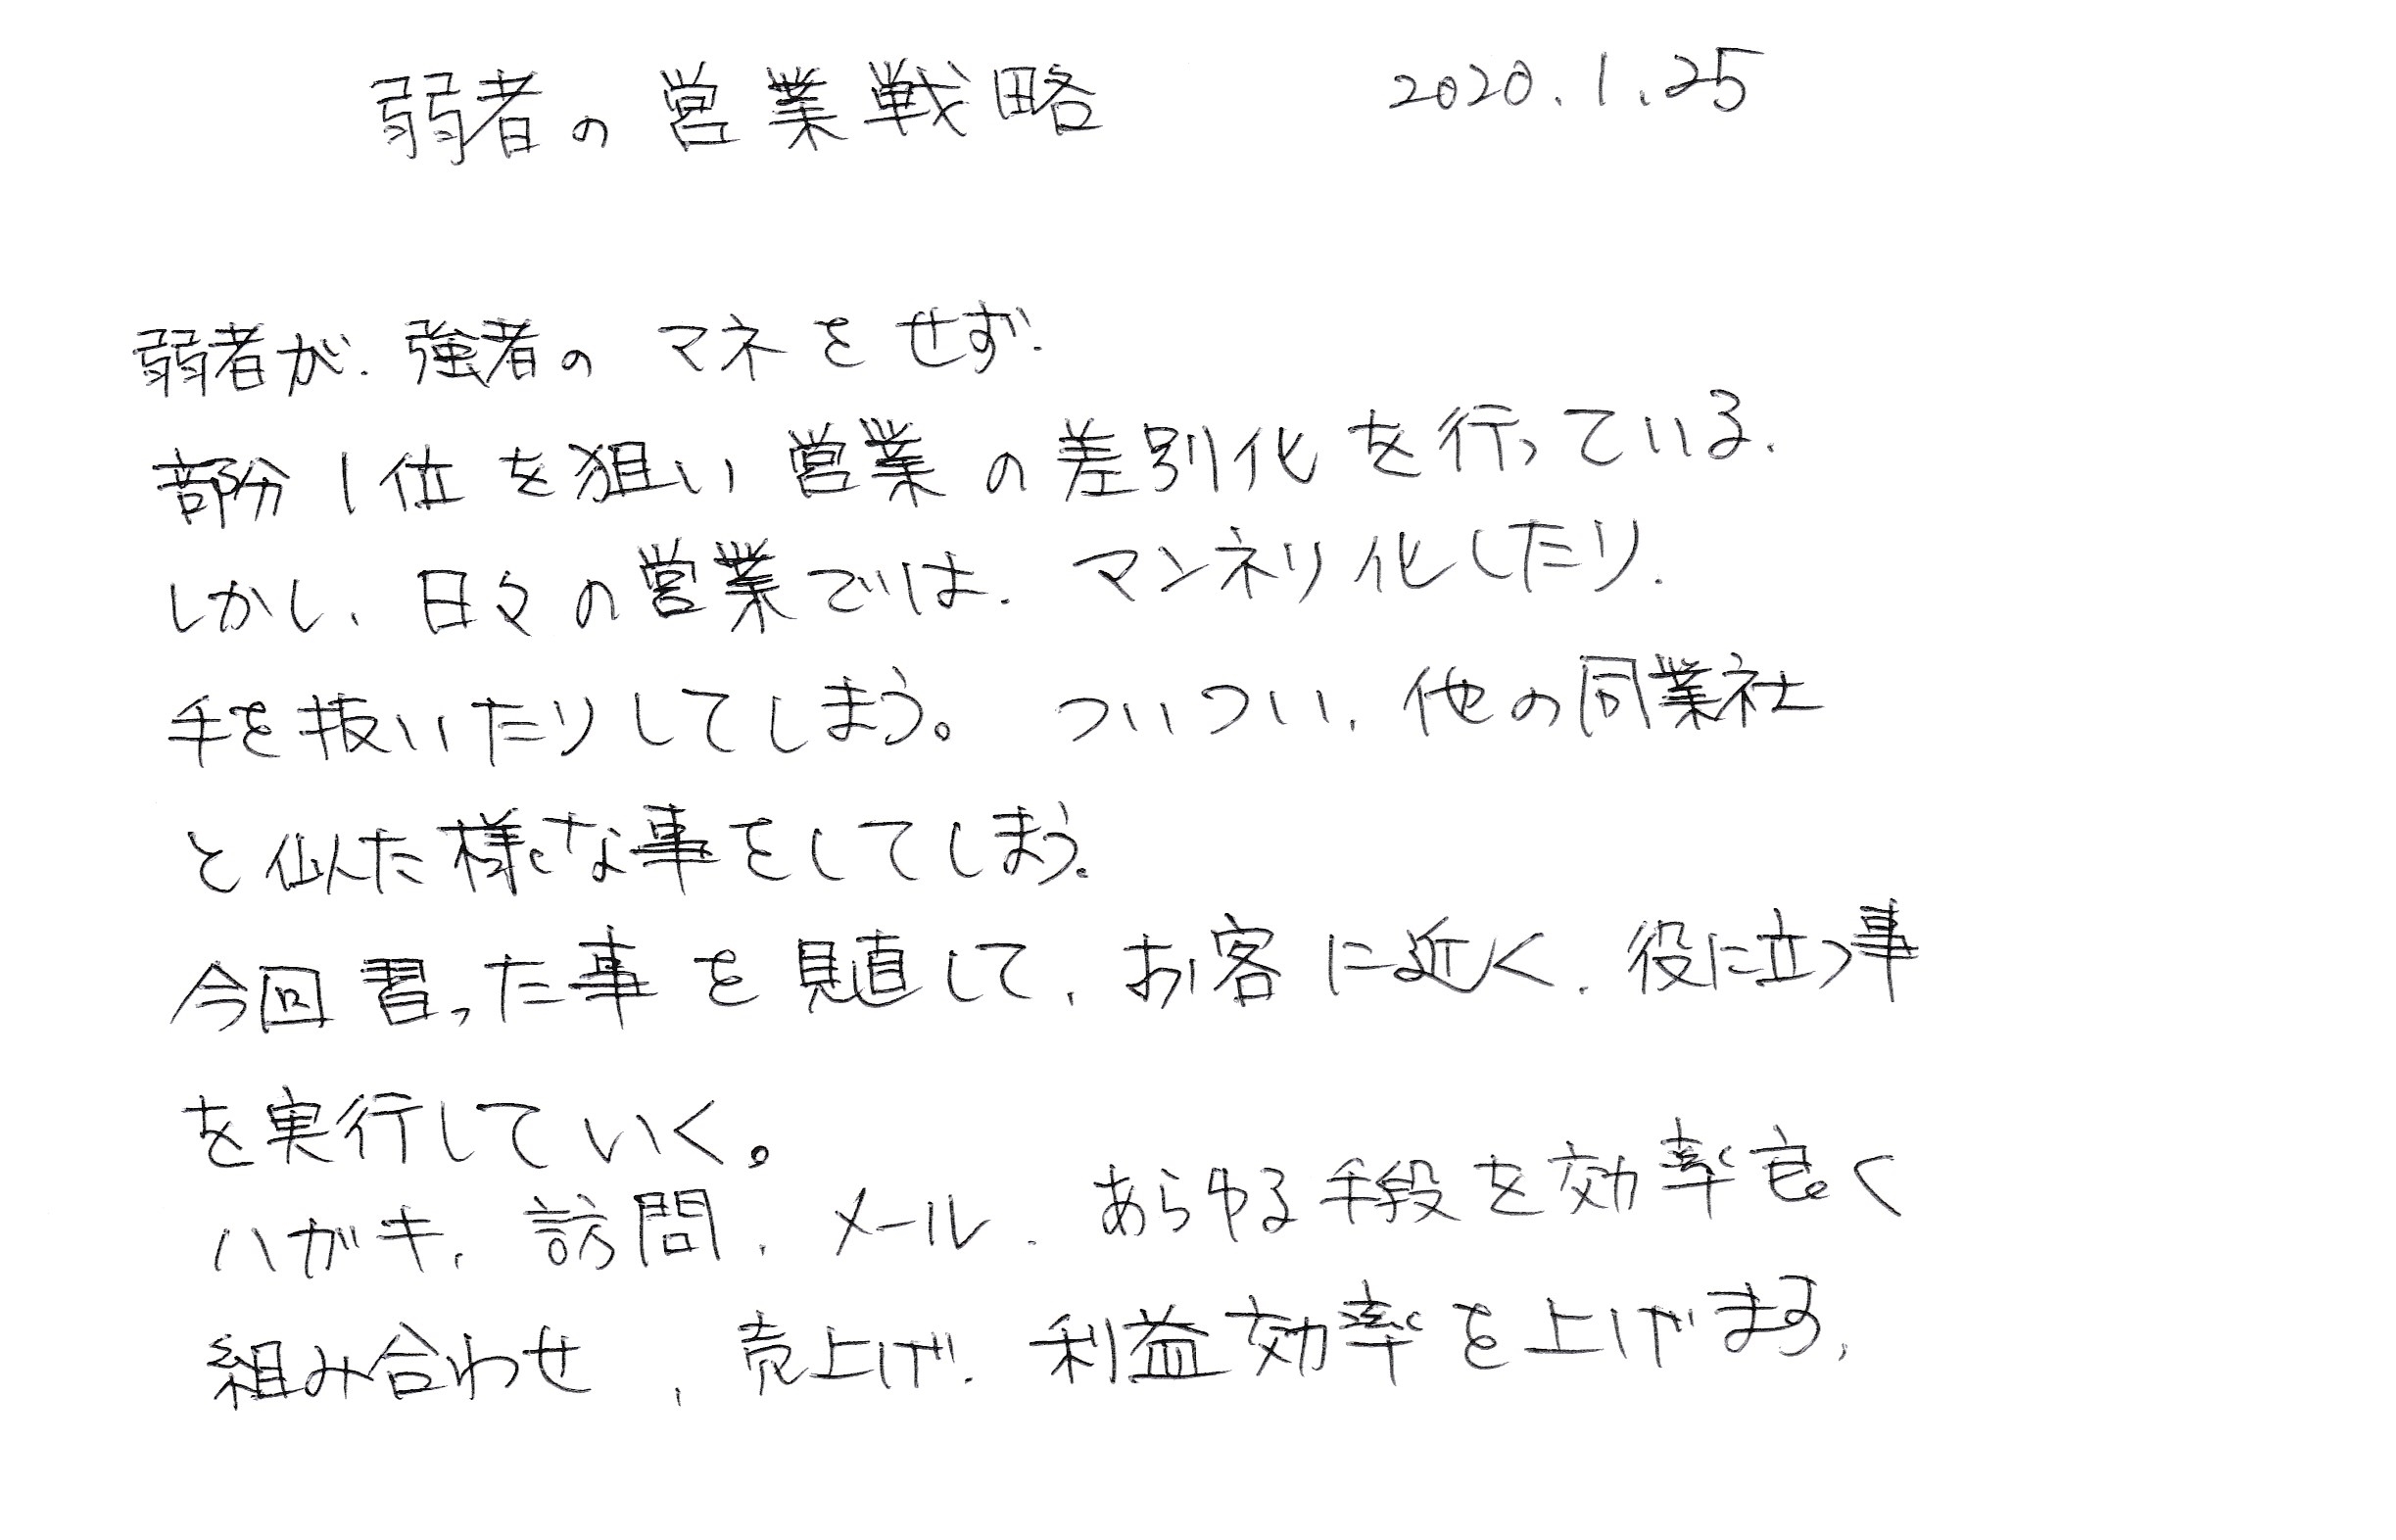 弱者の営業戦略 2020.1.25
弱者が、強者のマネをせず、
部分1位を狙い営業の差別化を行っている。
しかし、日々の営業では、マンネリ化したり、
手を抜いたりしてしまう。ついつい、他の同業社
と似た様な事をしてしまう。
今回習った事を見直して、お客に近く、役に立つ事
を実行していく。
ハガキ、訪問、メール、あらゆる手段を効率良く
組み合わせ、売上げ、利益効率を上げます。